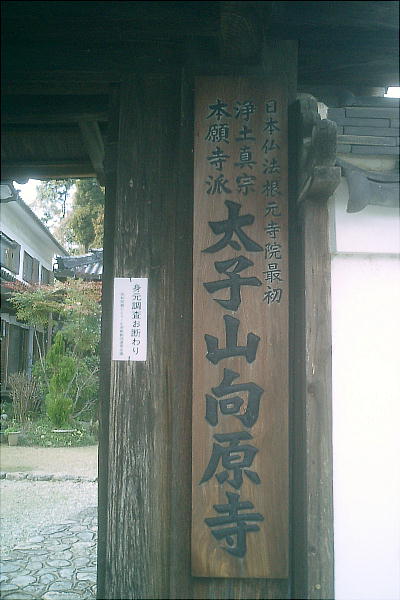 日本仏法根元寺院最初
浄土真宗
本願寺派
太子山向原寺
身元調査お断わり